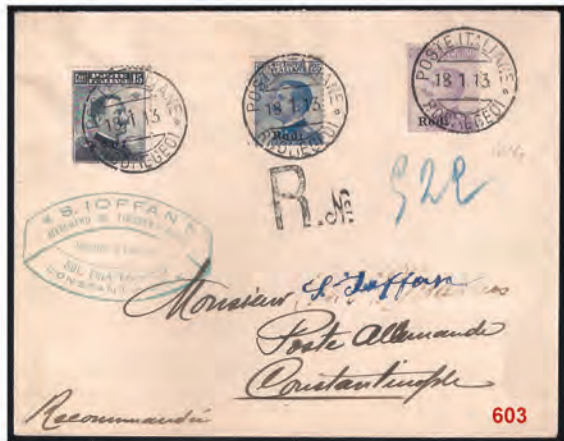 15
POSTE ITALIANE
18 1 13
RODI (EGEO)
POSTE ITALIANE
18 1 13
Rodi
RODI (EGEO)
POSTE ITALIANE
18 1 13
Rodi
RODI (EGEO)
R. No.
922
S. IOFFAN
MARCHAND DE TIMBRES
Monsieur S. Ioffan
Poste Allemande
Constantinople
Recommandée
603